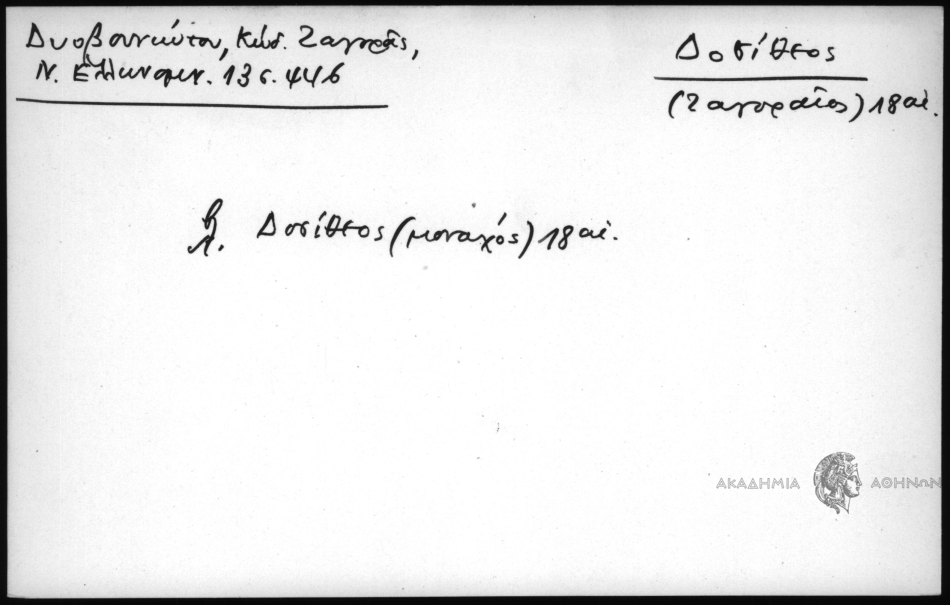 Δυοβουνιώτου, Κώδ. Ζαγορᾶς,
Ν. Ἑλληνομν. 13 σ. 446
Δοσίθεος
(Ζαγοραῖος) 18 αἰ.
βλ. Δοσίθεος (μοναχός) 18 αἰ.
ΑΚΑΔΗΜΙΑ ΑΘΗΝΩΝ